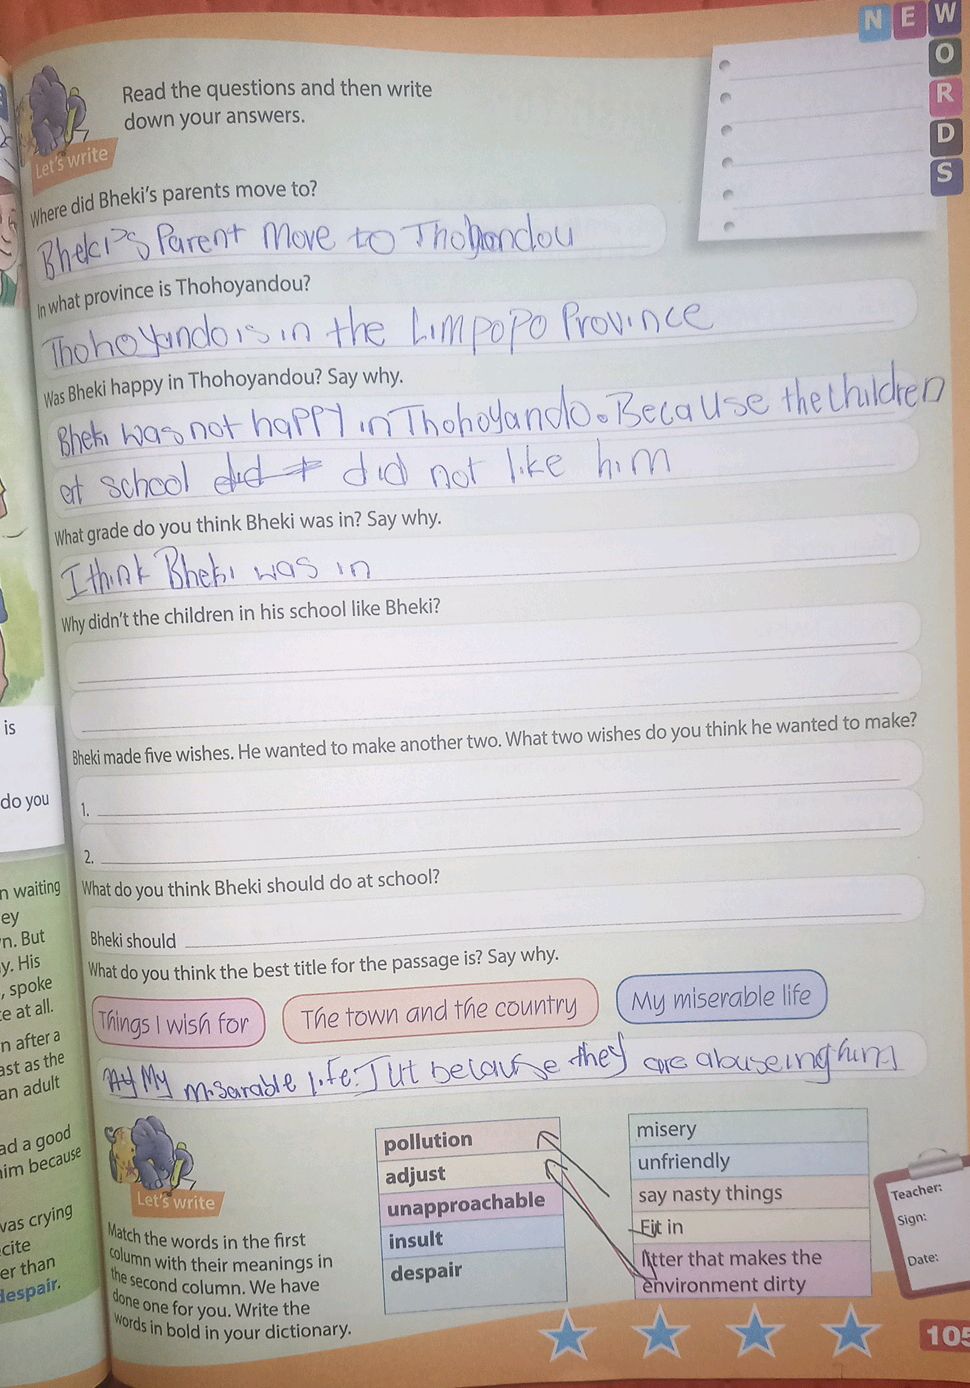 NEW
WORDS
Read the questions and then write
down your answers.
Let's write
Where did Bheki's parents move to?
Bheki's Parent Move to Thohoyandou
In what province is Thohoyandou?
Thohoyando is in the LimPoPo Province
Was Bheki happy in Thohoyandou? Say why.
Bheki was not happy in Thohoyando. Because the children
at school did did not like him
What grade do you think Bheki was in? Say why.
I think Bheki was in
Why didn't the children in his school like Bheki?
Bheki made five wishes. He wanted to make another two. What two wishes do you think he wanted to make?
1.
2.
What do you think Bheki should do at school?
Bheki should
What do you think the best title for the passage is? Say why.
Things I wish for
The town and the country
My miserable life
My Miserable life. because they are abuseing him
Let's write
Match the words in the first
column with their meanings in
the second column. We have
done one for you. Write the
words in bold in your dictionary.
pollution
adjust
unapproachable
insult
despair
misery
unfriendly
say nasty things
Fit in
litter that makes the
environment dirty
Teacher:
Sign:
Date:
105
is
do you
n waiting
ey
n. But
y. His
, spoke
e at all.
n after a
ast as the
an adult
ad a good
im because
was crying
cite
er than
despair.